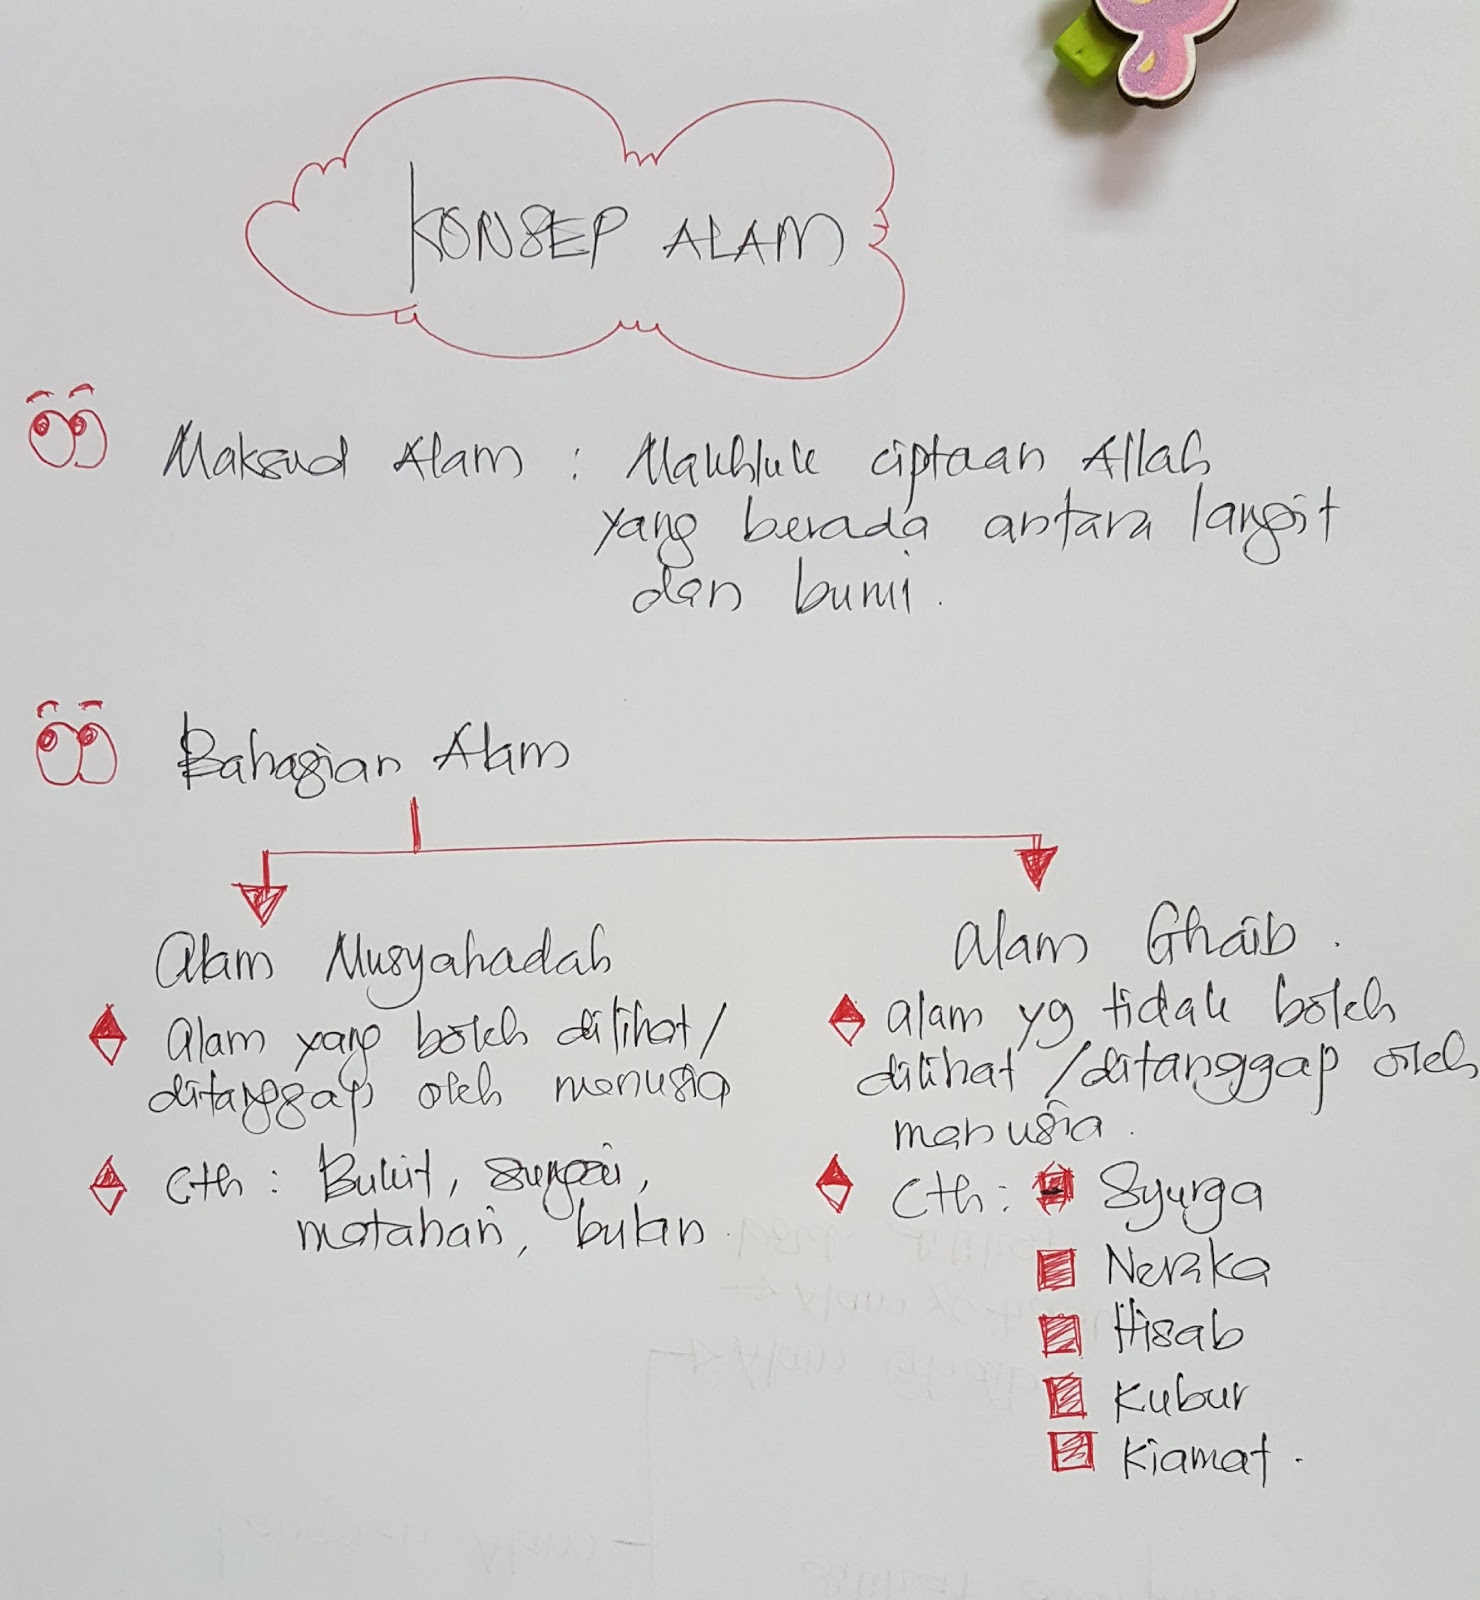 KONSEP ALAM
Maksud Alam : Makhluk ciptaan Allah
yang berada antara langit
dan bumi.
Bahagian Alam
Alam Musyahadah
Alam yang boleh dilihat/
ditanggap oleh manusia
Cth : Bukit, sungai,
matahari, bulan.
Alam Ghaib.
alam yg tidak boleh
dilihat/ditanggap oleh
manusia.
Cth : Syurga
Neraka
Hisab
Kubur
Kiamat.